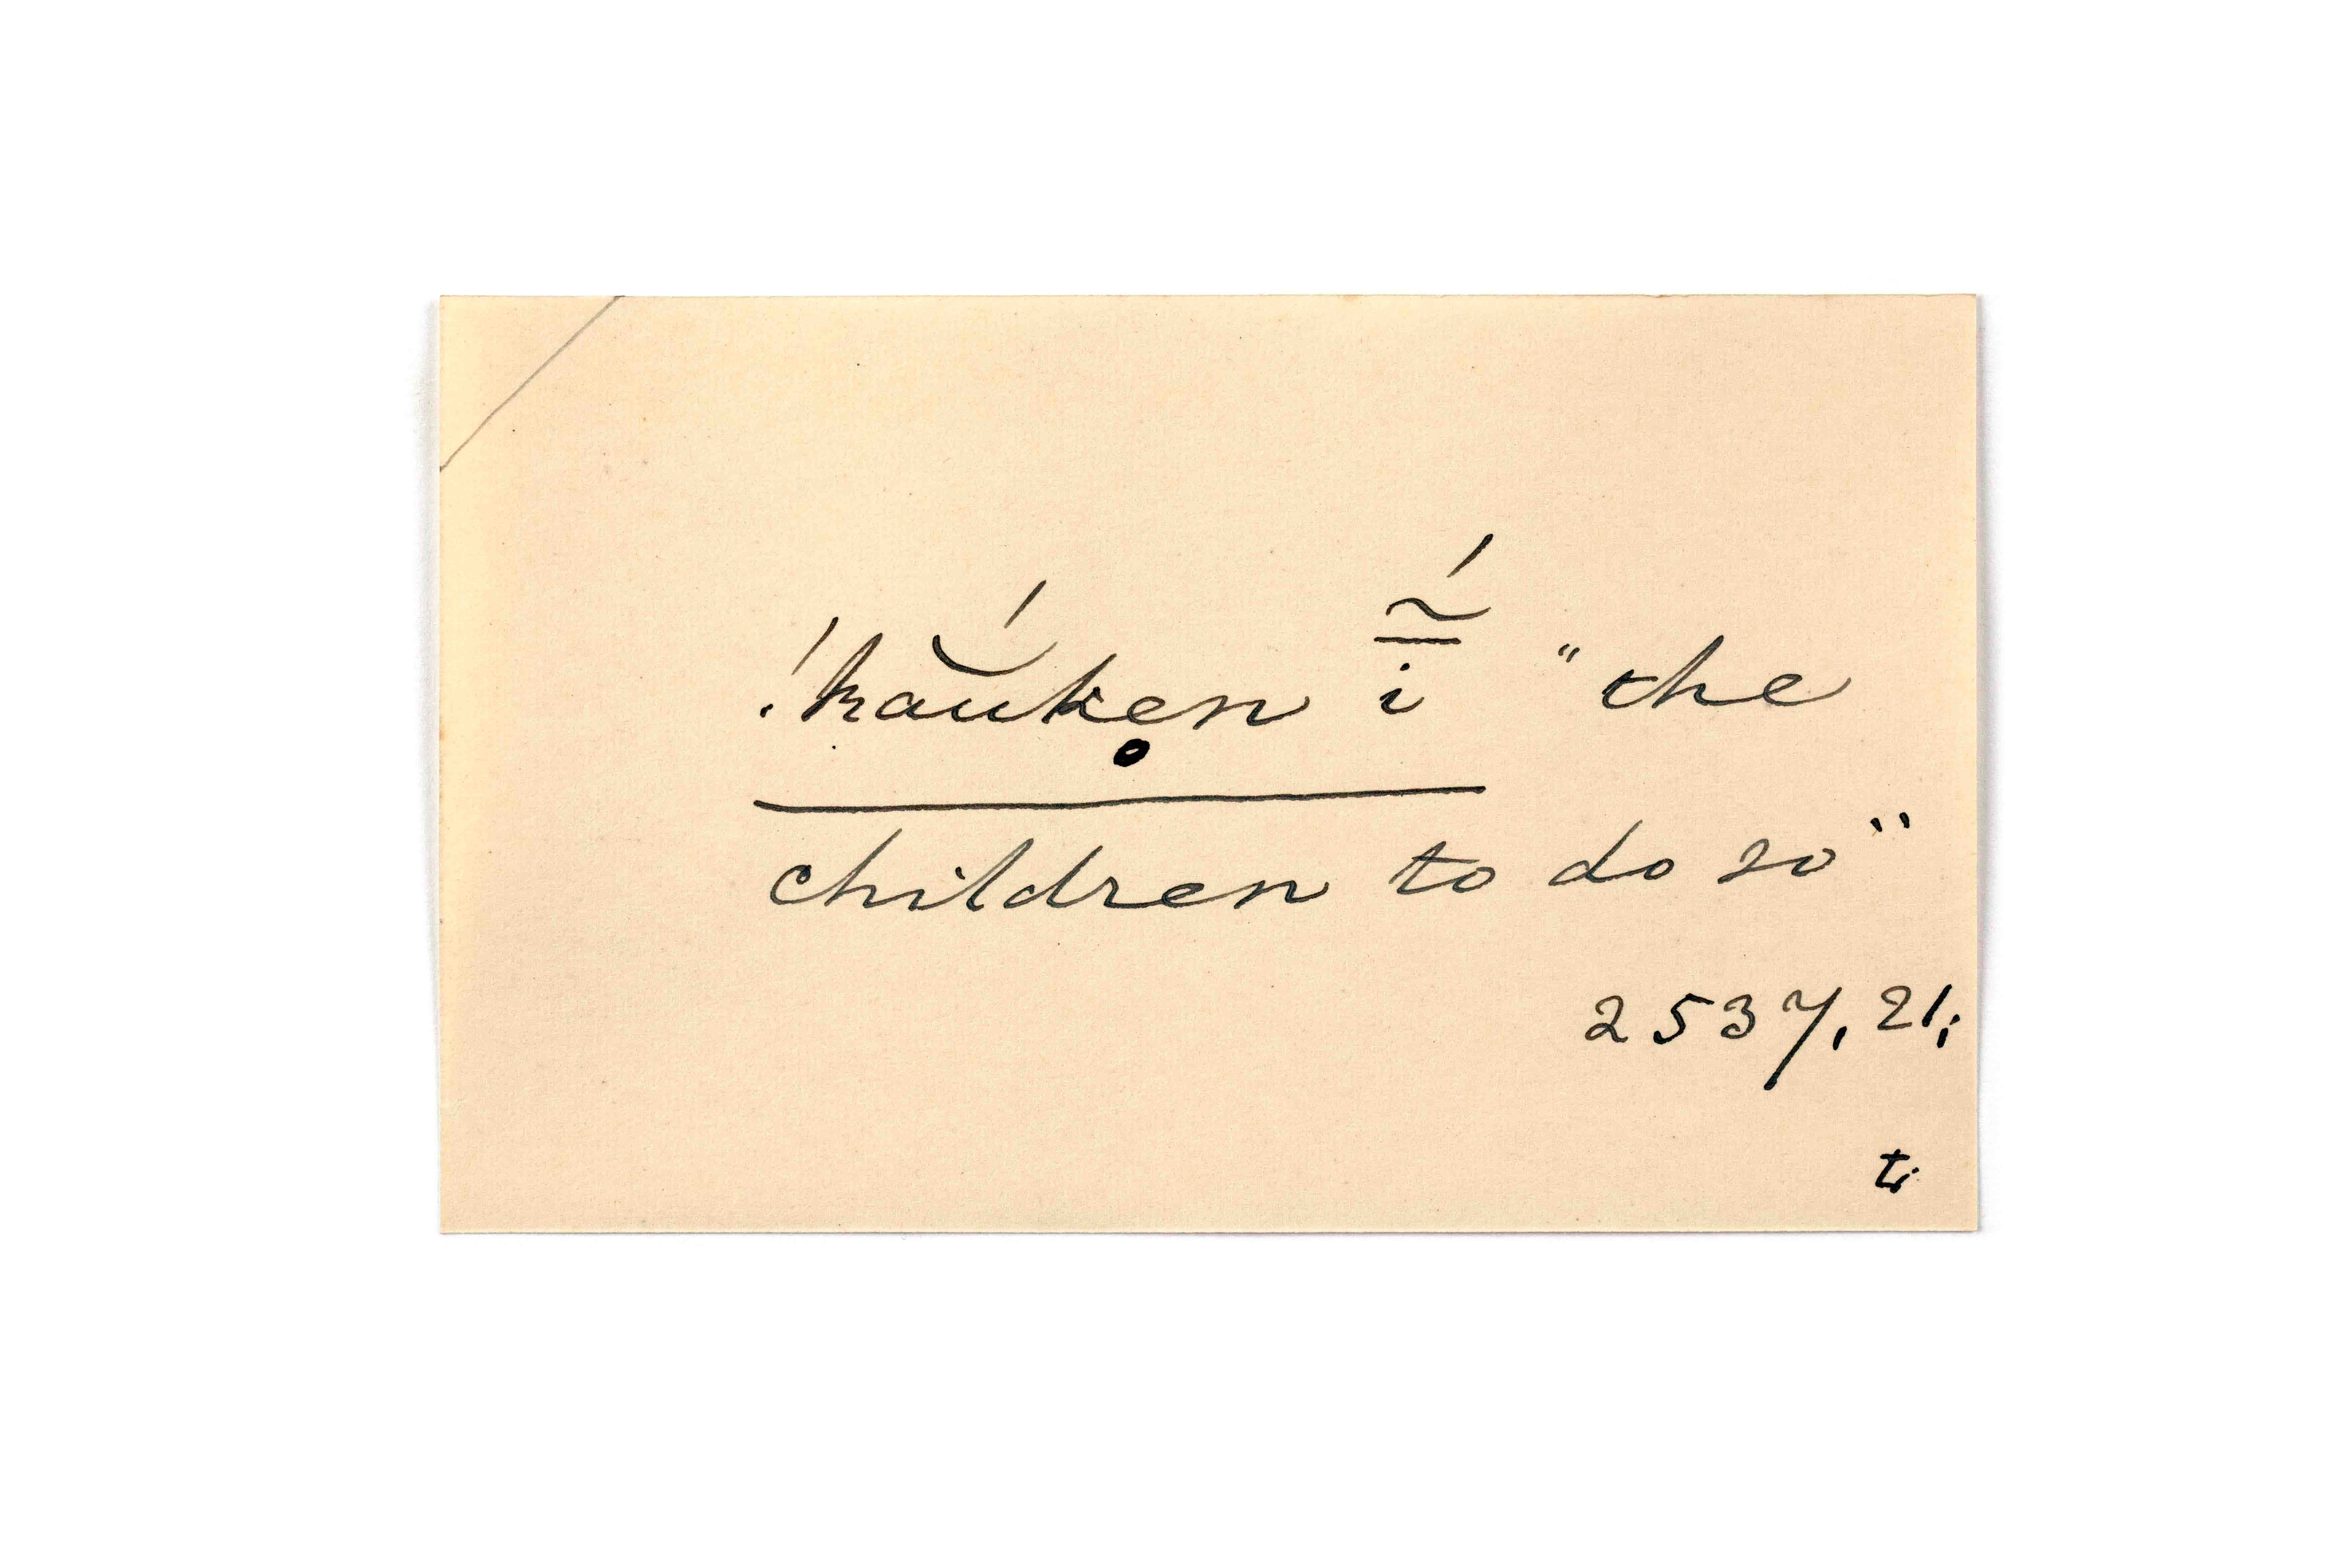 !kăú̯ken̥ ī̃́ "the
children to do so"
2537, 21;
ti